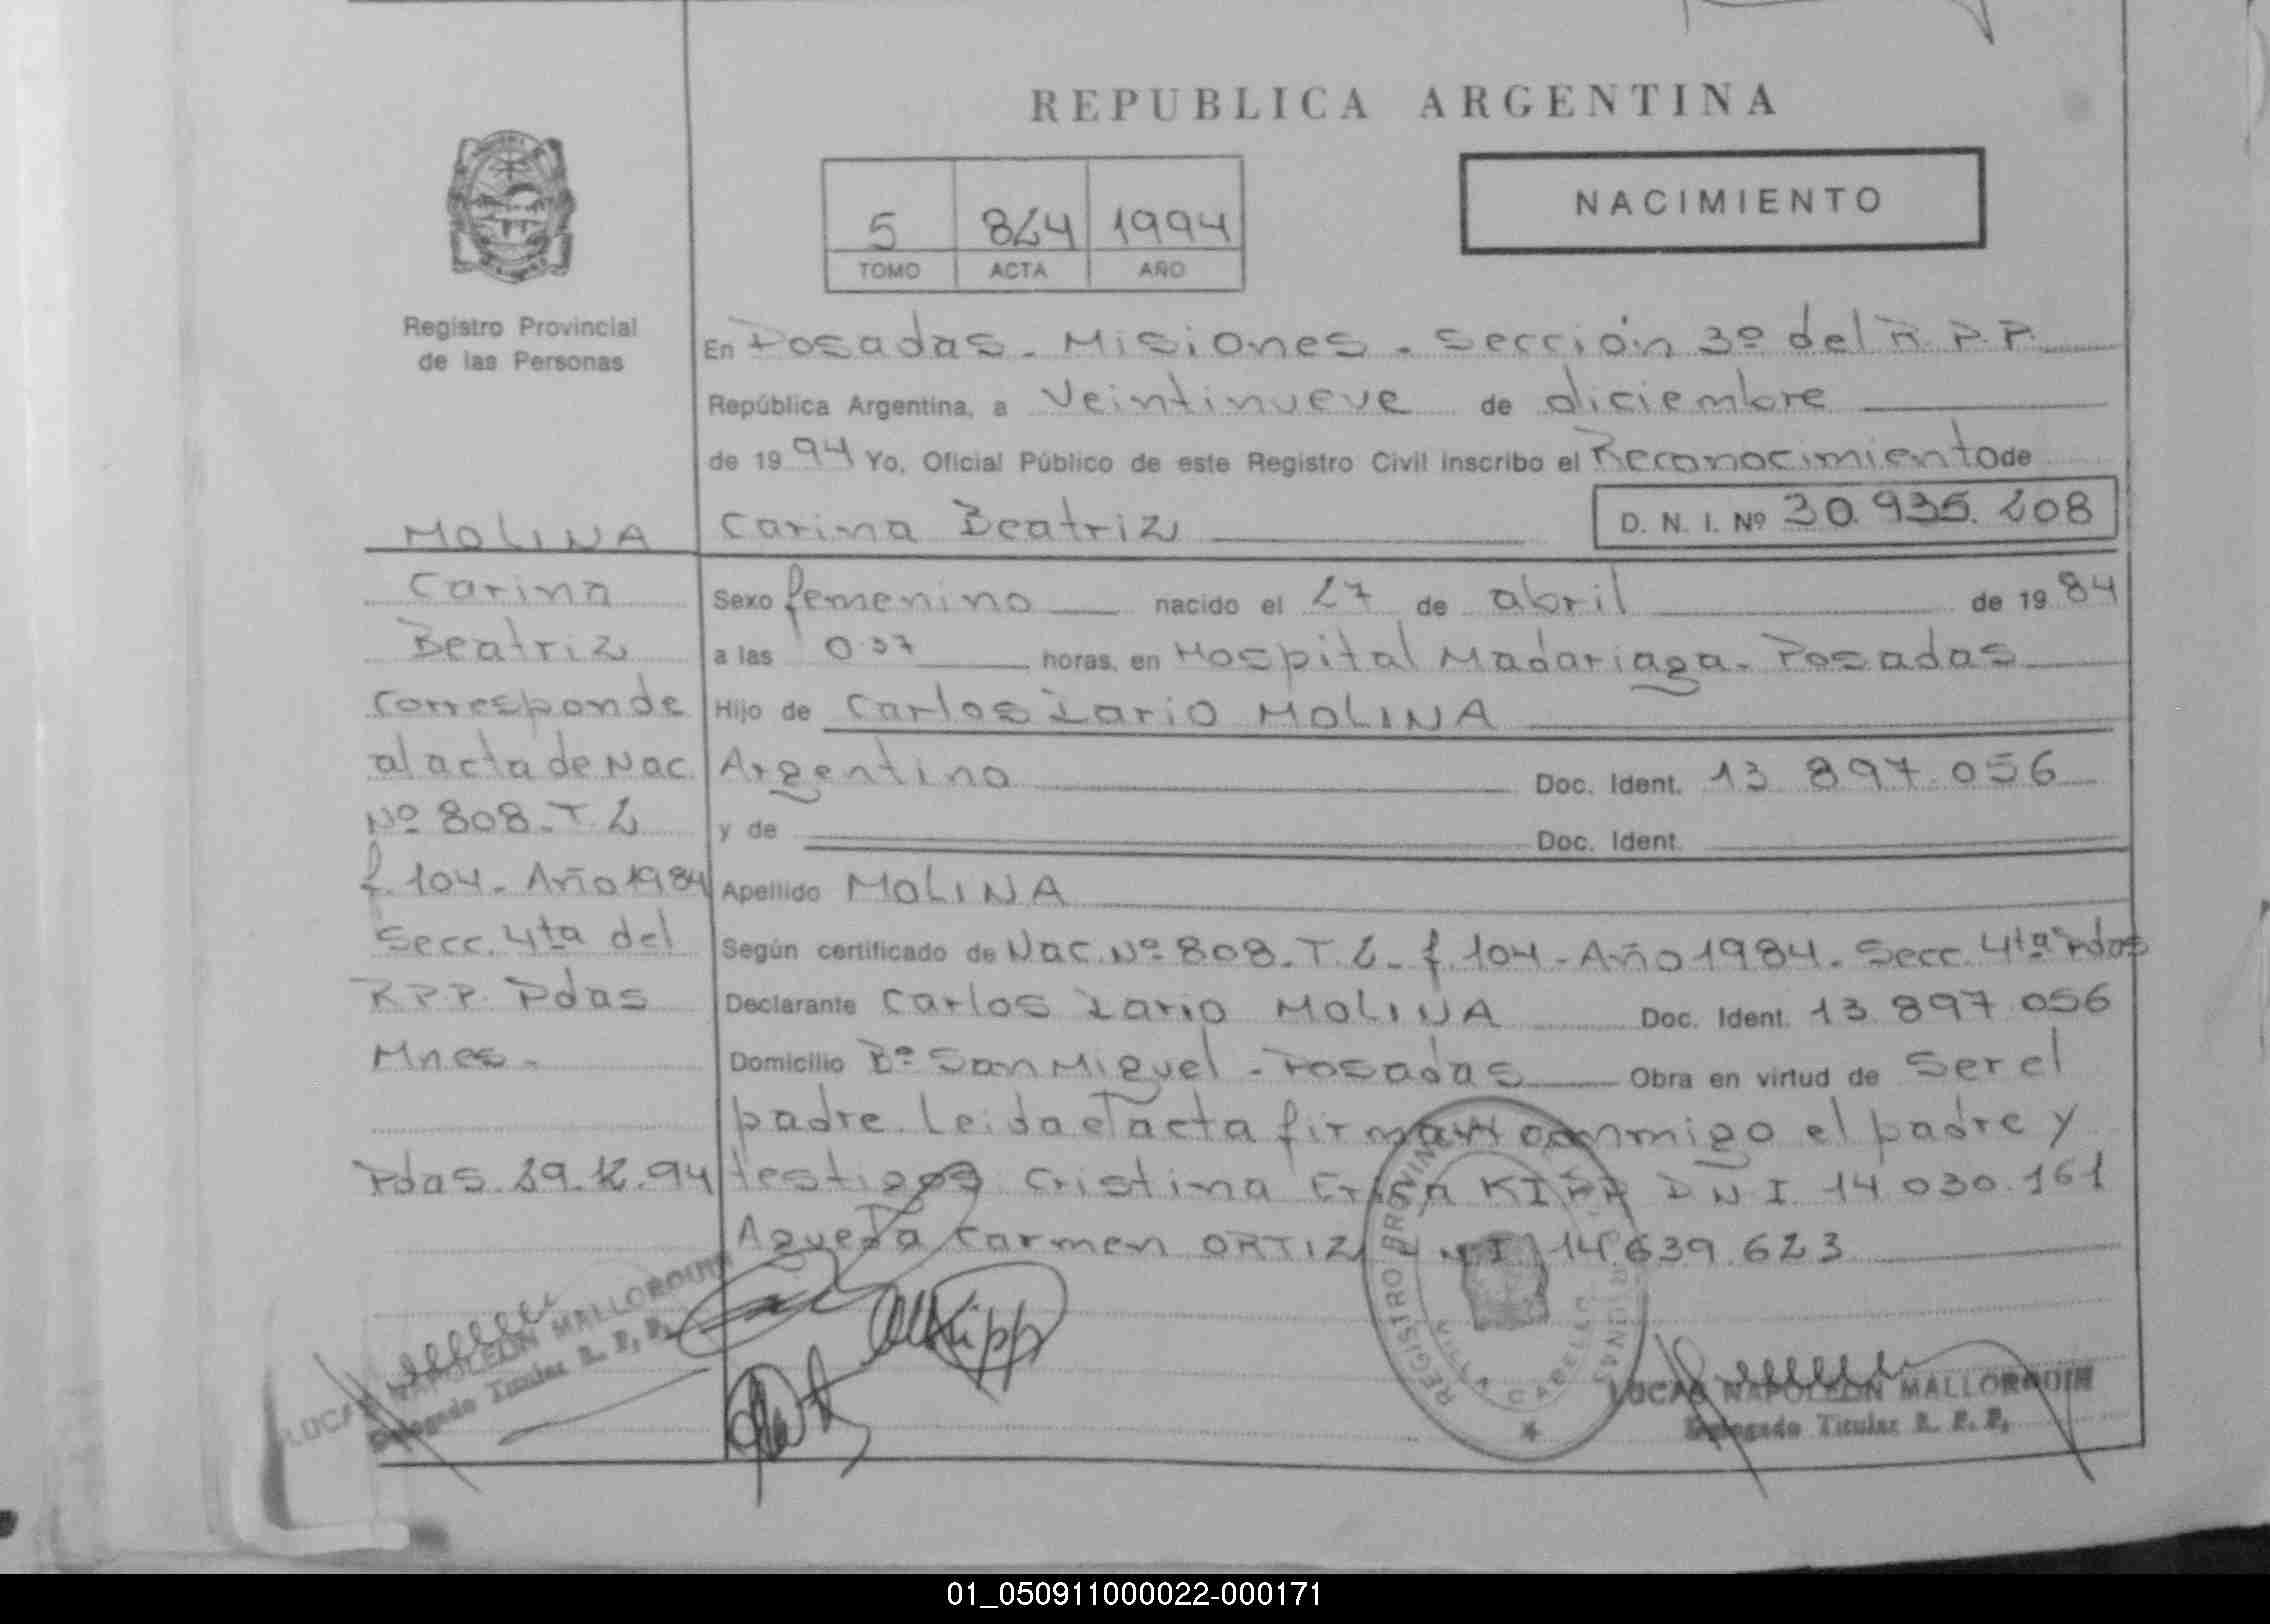 REPUBLICA ARGENTINA
NACIMIENTO
5 824 1994
TOMO ACTA AÑO
Registro Provincial
de las Personas
En Posadas - Misiones - Sección 3º del R.P.P.
República Argentina, a Veintinueve de diciembre
de 1994 Yo, Oficial Público de este Registro Civil inscribo el Reconocimiento de
Carina Beatriz
D. N. I. Nº 30.935.208
Sexo femenino nacido el 27 de abril de 1984
a las 0.37 horas, en Hospital Madariaga - Posadas
Hijo de Carlos Ilario MOLINA
Argentino Doc. Ident. 13.897.056
y de Doc. Ident.
Apellido MOLINA
Según certificado de Nac. Nº 808. T. 2 - f. 104 - Año 1984. Secc. 4ta Pdas
Declarante Carlos Ilario MOLINA Doc. Ident. 13.897.056
Domicilio Bº San Miguel - Posadas Obra en virtud de Ser el
padre. Leida el acta firman conmigo el padre y
testigos Cristina KIPP D N I 14.030.161
Agueda Carmen ORTIZ D N I 14.639.623
MOLINA
Carina
Beatriz
Corresponde
al acta de Nac.
Nº 808. T. 2
f. 104 - Año 1984
Secc. 4ta del
R.P.P. Pdas
Mnes.
Pdas. 29.12.94
LUCAS NAPOLEON MALLORQUIN
Delegado Titular R. P. P.
Kipp
REGISTRO PROVINCIAL
LUCAS NAPOLEON MALLORQUIN
Delegado Titular R. P. P.
01_050911000022-000171